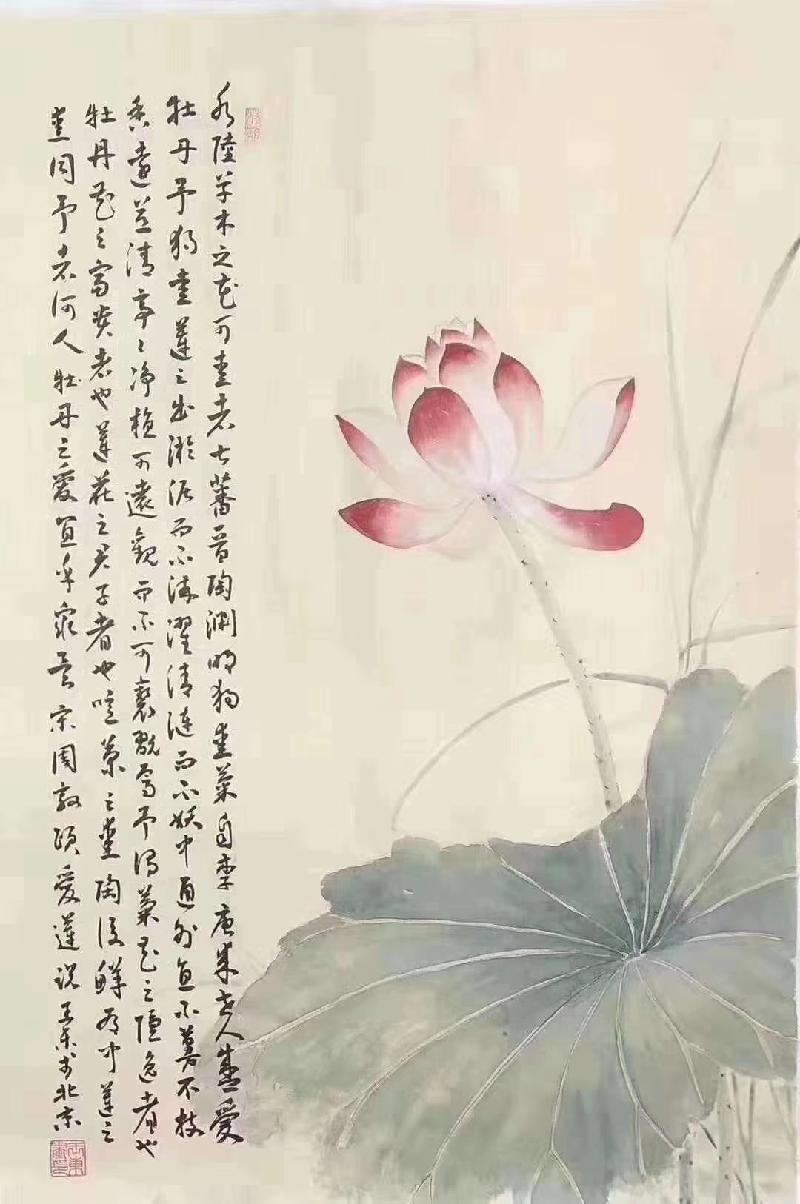 水陸草木之花可愛者甚蕃晉陶淵明獨愛菊自李唐來世人盛愛
牡丹予獨愛蓮之出淤泥而不染濯清漣而不妖中通外直不蔓不枝
香遠益清亭〻净植可遠觀而不可褻翫焉予謂菊花之隱逸者也
牡丹花之富貴者也蓮花之君子者也噫菊之愛陶後鮮有聞蓮之
愛同予者何人牡丹之愛宜乎衆矣宋周敦頤愛蓮説 书北京